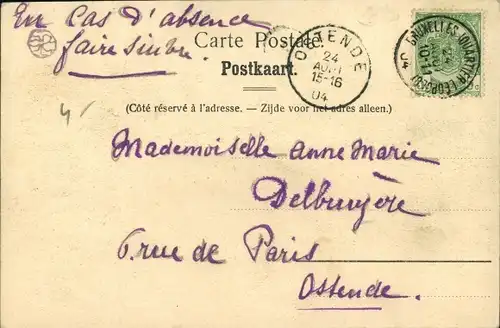 En cas d'absence
faire suivre.
Carte Postale
Postkaart.
OSTENDE
24
AOUT
15-16
04
BRUXELLES (QUARTIER-LEOPOLD)
10-11
04
(Côté réservé à l'adresse. – Zijde voor het adres alleen.)
Mademoiselle Anne Marie
Delbruyère
6 rue de Paris
Ostende.